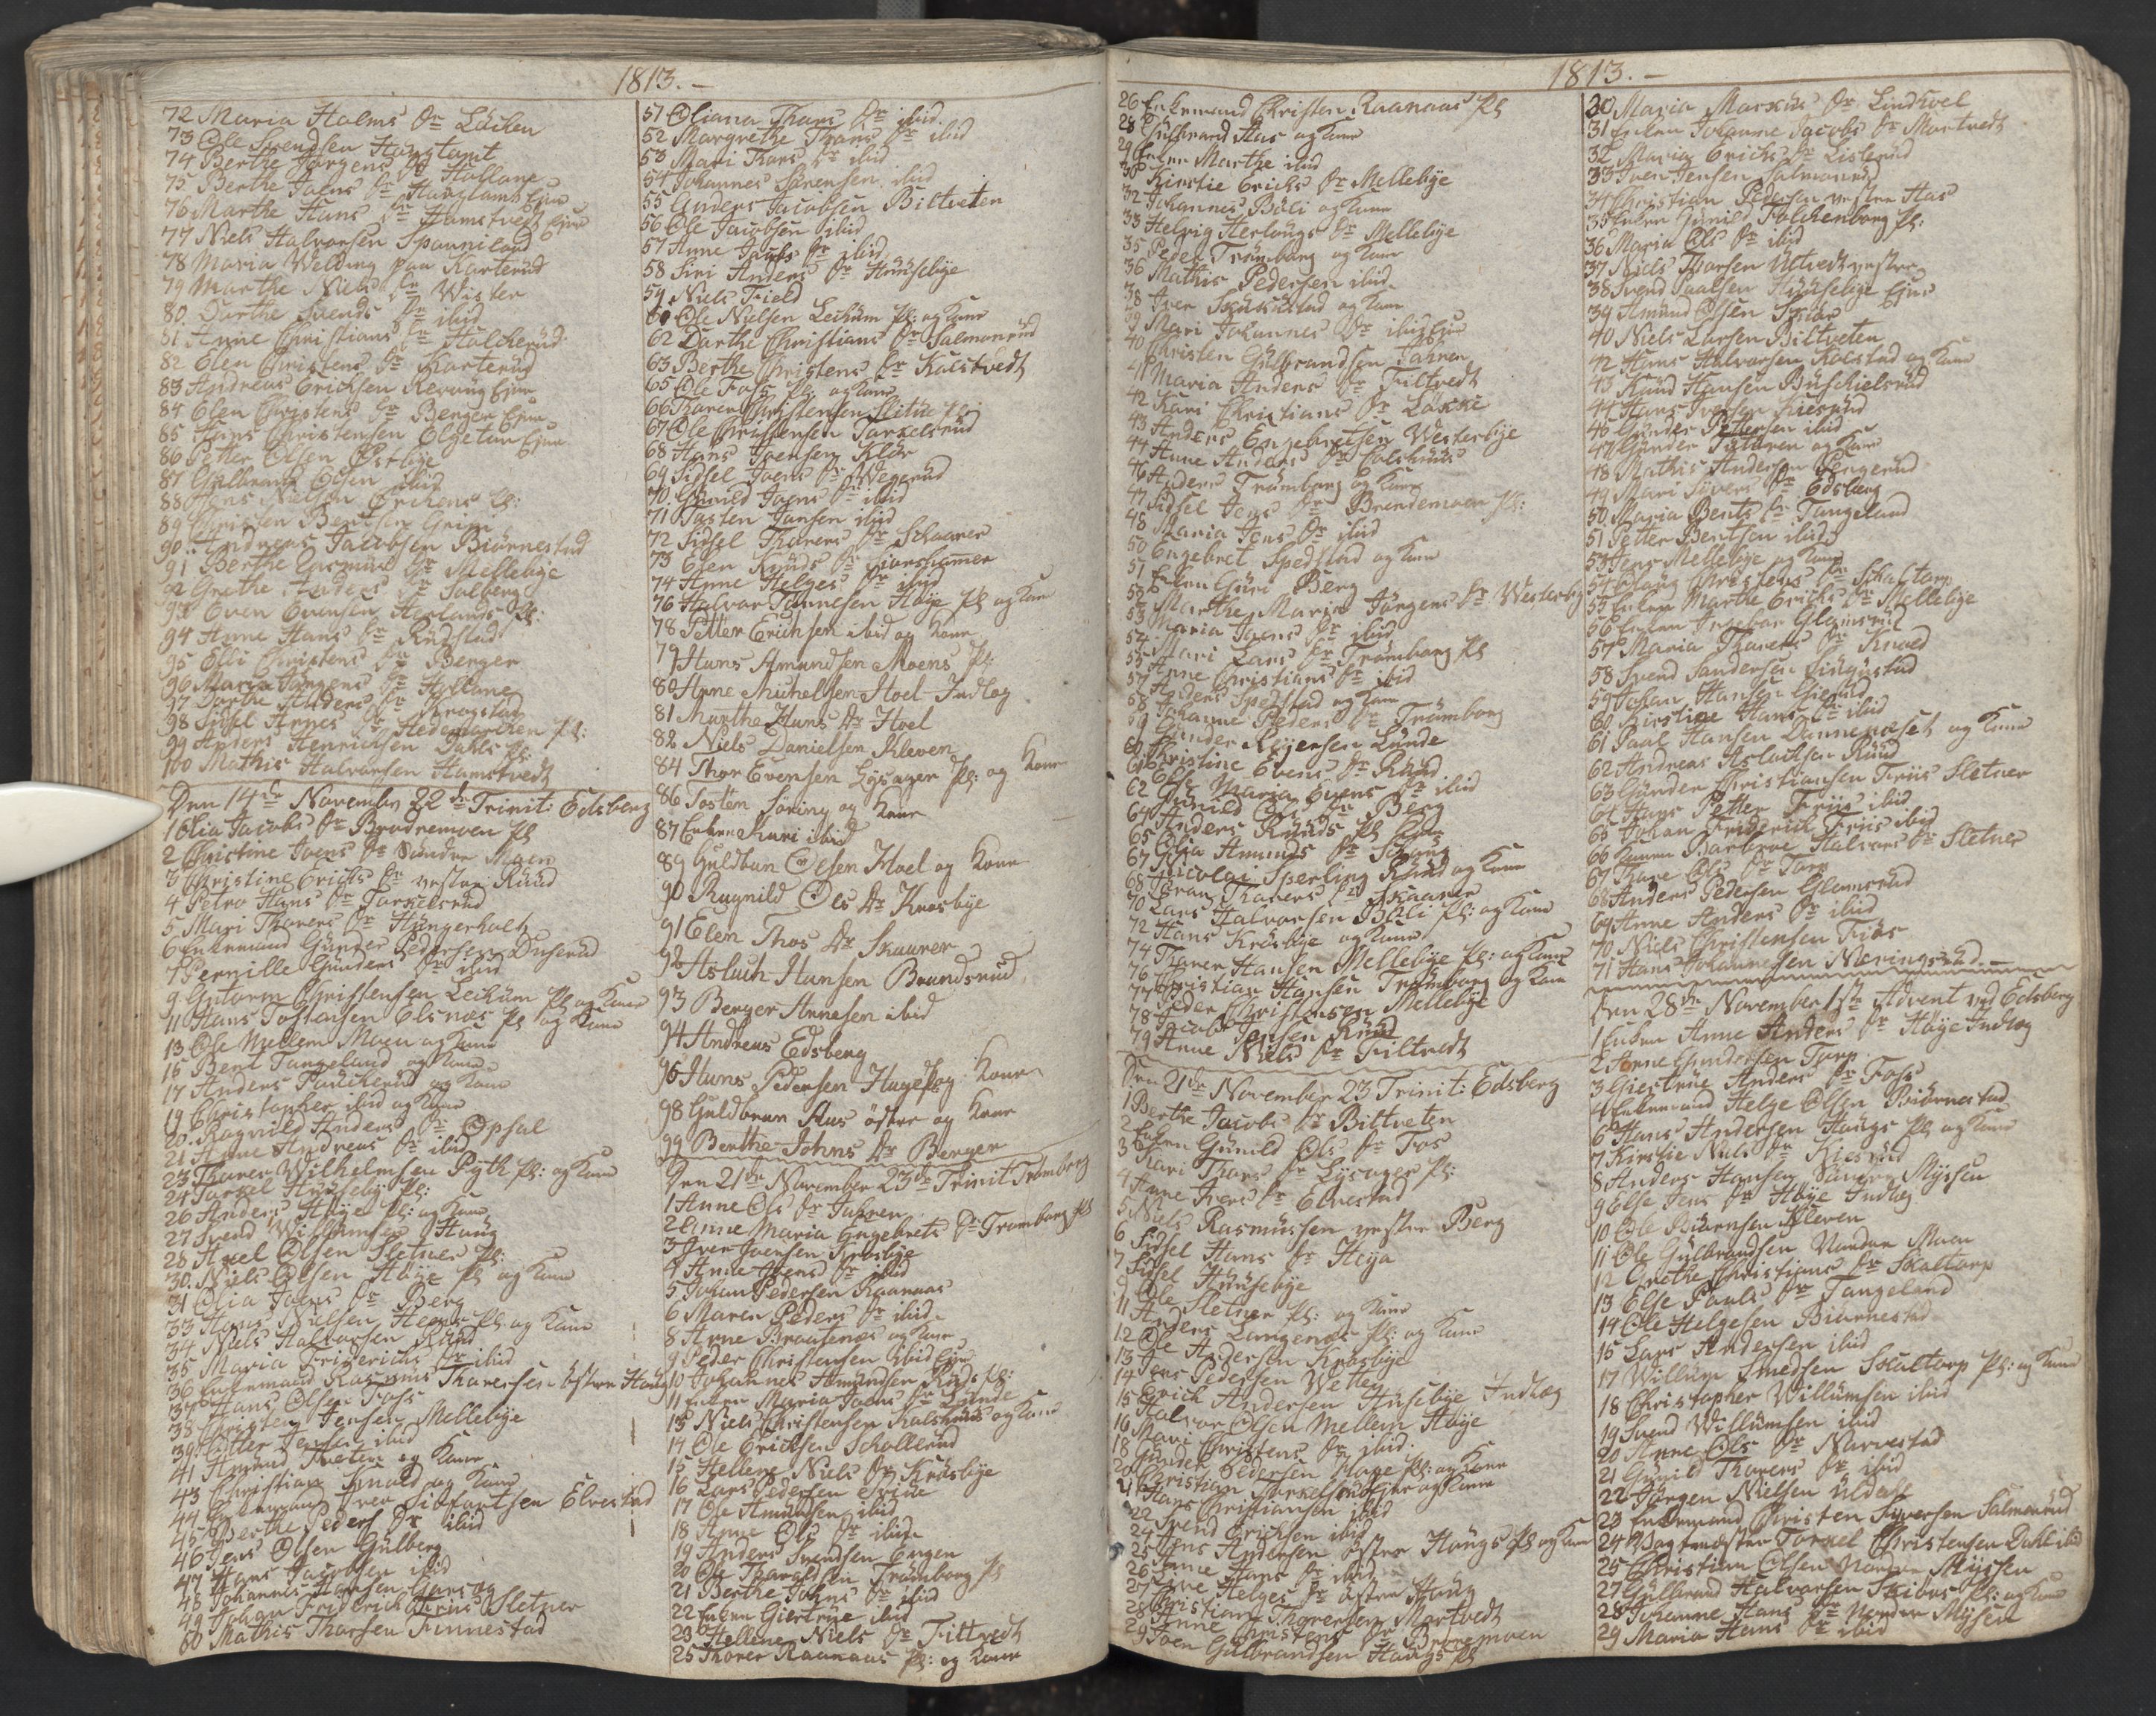 1813.-
72 Maria Halms Dr Löcken
73 Ole Svendsen Hamstamt
74 Berthe Jørgens Dr Hallane
75 Berthe Joens Dr Ejer
76 Marthe Hans Dr Hamstvedt Ejer
77 Niels Halvorsen Spanneland
78 Maria Welding paa Karterud
79 Marthe Niels Dr Wister
80. Dorthe Svends Dr ibid
81. Anne Christians Dr Halckerud
82 Elen Christens Dr Karterud
83 Andreas Erichsen Revoug Ejer
84. Elen Christens Dr Berger Ejer
85 Hans Christensen Elgetun Ejer
86 Petter Olsen Østbye
87 Gulbrand Olsen ibid
88 Jens Nielsen Erichens Pl:
89 Christen Bentsen Grim
90. Andreas Jacobsen Biørnestad
91 Berthe Dr Mellebye
92 Grethe Anders Dr Solberg
93 Even Evensen Haslands Pl:
94 Anne Hans Dr Rudstad
95 Elli Christens Dr Berger
96 Maria Jørgens Dr Hallane
97 Dorthe Anders Dr Kragstad
98 Sidsel Arnes Dr Hedemarchen Pl:
99 Anders Henrichsen Dahls Pl:
100 Mathis Halvorsen Hamstvedt
Den 14de November 22de Trinit: Edsberg
1 Olia Jacobs Dr Brødremoen Pl
2 Christine Joens Dr Søndre Moen
3 Christine Erichs Dr vestre Ruud
4 Petro Hans Dr Torkelsrud
5 Mari Thorers Dr Hungerholt
6 Enkemand Gunder Pedersen Duserud
7 Pernille Gunders Dr ibid
9 Gutorm Christensen Leckum Pl og Kone
11 Hans Tostensen Elsnæs Pl og Kone
13 Ole Mellem Moen og Kone
15 Bent Tangeland og Kone
17 Anders og Kone
19 Christopher ibid og Kone
20. Ragnild Anders Dr Opsal
21 Anne Andreas Dr ibid
23 Thorer Wilhelmsen Pyth Pl: og Kone
24 Torkel Huusebÿ Pl:
26 Anders Høÿe Pl: og Kone
27 Svend Willumsen Haug
28 Axel Olsen Sletner Pl:
30. Niels Olsen Høÿe Pl og Kone
31 Olia Joens Dr Berg
33 Hans Nielsen Pl og Kone
34 Niels Halvorsen Ruud
35 Maria Friderichs Dr ibid
36 Enkemand Rasmus Thoresen østre Haug
37 Hans Olsen Foss
38 Christen Jensen Mellebye
39 Petter Jensen ibid
41 Amund Tveten og Kone
43 Christian Knold og Kone
44 Enkemand Iver Sigfartsen Elvestad
45 Berthe Peders Dr ibid
46 Jens Olsen Gulberg
47 Hans Jacobsen ibid
48 Johannes Hansen
49 Johan Friderich Friis Sletner
50 Mathis Thorsen Finnestad
51 Oliana Thors Dr ibid.
52 Margrethe Thors Dr ibid
53 Mari Thors Dr ibid
54 Johannes Sørensen ibid
55 Anders Jacobsen Biltveten
56 Ole Jacobsen ibid
57 Anne Jacobs Dr ibid
58 Siri Anders Dr Huusebye
59 Niels Field
60 Ole Nielsen Leckum Pl: og Kone
62 Dorthe Christians Dr Salmonrud
63 Berthe Christens Dr Kaastvedt
65 Ole Foss Pl og Kone
66 Thorer Christensen Slitue Pl:
67 Ole Christensen Torkelsrud
68 Hans Joensen Kløv
69 Sidsel Joens Dr Wegerud
70. Gunild Joens Dr ibid
71 Tosten Jonsen ibid
72 Sidsel Thorers Dr Schaarer
73 Elen Knuds Dr Giarshammer
74 Anne Helges Dr ibid
76 Halvor Tønnesen Høye Pl og Kone
78 Petter Erichsen ibid og Kone
79 Hans Amundsen Moens Pl:
80 Anne Michelsen Hoel Indlog
81 Marthe Hans Dr Hoel
82 Niels Danielsen Kleven
84 Thor Evensen Lysager Pl: og Kone
86 Tosten Søring og Kone
87 Enken Kari ibid
89 Guldbran Olsen Hoel og Kone
90 Ragnild Ols Dr Krosbye
91 Elen Thos Dr Skaarer
92 Asluch Hansen Brandsrud
93 Berger Arnesen ibid
94 Andreas Edsberg
96 Hans Pedersen Hage og Kone
98 Guldbran Aas østre og Kone
99 Berthe Johns Dr Berger
Den 21de November 23de Trinit Trømborg
1 Anne Ols Dr Jahren
2 Anne Maria Engebrets Dr Trømborg Pl
3 Iver Joensen Krosbye
4 Anne Joens Dr ibid
5 Johan Pedersen Raanaas
6 Maren Peders Dr ibid
8 Arne Braatenæs og Kone
9 Peder Christensen ibid Ejer
10 Johannes Amundsen Ruds Pl:
11 Enken Maria Joens Dr Lunde
13 Niels Christensen Kolshuus og Kone
14 Ole Erichsen Schollerud
15 Hellene Niels Dr Krosbÿe
16 Lars Pedersen Grue
17 Ole Amundsen ibid
18 Anne Ols Dr ibid
19 Anders Svendsen Engen
20 Ole Tharaldsen Trømborg Pl
21 Berthe Johns Dr ibid
22 Enken Giertrue ibid
23 Hellene Niels Dr Filtvedt
25 Thorer Raanaas Pl: og Kone
1813.-
26 Enkemand Christen Raanaas Pl
28 Gulbrand Aas og Kone
29 Enken Marthe ibid
30 Kirstie Erichs Dr Mellebye
32 Johannes Böli og Kone
33 Helvig Herlougs Dr Mellebÿe
35 Peder Trømborg og Kone
36 Mathis Pedersen ibid
38 Iver Skukestad og Kone
39 Mari Johannes Dr ibid Ejer
40 Christen Gulbrandsen Jahren
41 Maria Anders Dr Filtvedt
42 Kari Christians Dr Løkke
43 Anders Engebretsen Westerbÿe
44 Anne Anders Dr Colshuus
46 Anders Trømborg og Kone
47 Sidsel Jens Dr Brendemoen Pl:
48 Maria Jens Dr ibid
50 Engebret Spedstad og Kone
51 Enken Guri Berg
52 Marthe Maria Jørgens Dr Westerby
53 Maria Joens Dr ibid
54. Mari Lars Dr Trømborg Pl
55 Anne Christians Dr ibid
57 Anders Spedstad og Kone
58 Johanne Peders Dr Trømborg
59 Gunder Reÿersen Lunde
60 Christine Evens Dr Ruud
61 Else Maria Evens Dr ibid
62 Gunild Ols Dr Berg
64 Anders Ruuds Pl og Kone
65 Olia Amunds Dr Schoug
67 Nicolai Sperling Ruud og Kone
68 Joran Thorers Dr Skaarer
70 Lars Halvorsen Böli Pl: og Kone
72 Hans Krosbye og Kone
74 Thorer Hansen Mellebye Pl: og Kone
76 Christian Hansen Trømborg og Kone
77 Peder Christensen Mellebÿe
78 Jacob Jensen Ruud
79 Anne Niels Dr Filtvedt
Den 21de November 23 Trinit: Edsberg
1 Berthe Jacobs Dr Biltveten
2 Enken Gunild Ols Dr Fos
3 Kari Thors Dr Lysager Pl:
4 Anne Ivers Dr Elvestad
5 Niels Rasmussen vestre Berg
6 Sidsel Hans Dr Heÿa
7 Sidsel Huusebÿe
9 Ole Sletner Pl: og Kone
11 Anders Langenæs Pl: og Kone
12 Ole Andersen Krosbÿe
13 Jens Pedersen Wetten
14 Erich Andersen Husebÿe Indlog
15 Halvor Olsen Mellem Høÿe
16 Mari Christens Dr ibid.
18 Gunder Pedersen Hage Pl: og Kone
20 Christian Torkelsrud Ejer og Kone
21 Hans Christiansen ibid
22 Svend Erichsen ibid
24 Jens Andersen østre Haugs Pl og Kone
25 Anne Hans Dr ibid
26 Anne Helges Dr østre Haug
27 Christian Thoresen Mortvedt
28 Anne Christens Dr Brødremoen
29 Joen Gulbrandsen Haugs Pl
30 Maria Marcus Dr Lindhoel
31 Enken Johanne Jacobs Dr Mortvedt
32 Maria Erichs Dr Listerud
33 Iver Jensen Salmonrud
34 Christian Pedersen vestre Aas
35 Enken Gunild Falchenborg Pl:
36 Maria Ols Dr ibid
37 Niels Thorsen Ultvedt vestre
38 Svend Paulsen Huusebÿe Ejer
39 Amund Olsen Fiør
40 Niels Larsen Biltveten
42 Hans Halvorsen Kolstad og Kone
43 Knud Hansen Buschielsrud
44 Hans Iversen Kiesrud
45 Gunder Pettersen ibid
47 Gunder Tutturen og Kone
48 Mathis Andersen Lengerud
49 Mari Sivers Dr Edsberg
50 Maria Bents Dr Tangeland
51 Petter Bentsen ibid
53 Jens Mellebÿe og Kone
54 Oloug Christens Dr Schaltorp
55 Enken Marthe Erichs Dr Mellebÿe
56 Enken Ingebor Glomsrud
57 Maria Thorers Dr Knold
58 Svend Sandersen
59 Johan Hansen Gierud
60 Kirstine Hans Dr ibid
61 Paal Hansen Dannenæset og Kone
62 Andreas Aslachsen Ruud
63 Gunder Christiansen Friis Sletner
64 Hans Petter Friis ibid
65 Johan Friderich Friis ibid
66 Barbroe Halvors Dr Sletner
67 Thore Ols Dr Torp
68 Anders Pedersen Glomsrud
69 Anne Anders Dr ibid
70 Niels Christensen Fiør
71 Hans Johannesen Neringsrud
Den 28de November 1ste Advent ved Edsberg
1 Enken Anne Anders Dr Høÿe Indlog
2 Arne Gundersen Torp
3 Giertrue Anders Dr Foss
4 Enkemand Helge Olsen Biørnestad
6 Hans Andersen Haugs Pl og Kone
7 Kirstie Niels Dr Kiesrud
8 Anders Hansen Søndre Myssen
9 Else Jens Dr Høÿe Indlog
10 Ole Biørnsen Kleven
11 Ole Gulbrandsen Nordre Moen
12 Grethe Christians Dr Skaltorp
13 Else Pauls Dr Tangeland
14 Ole Helgesen Biørnestad
15 Lars Andersen ibid
17 Willum Smedsen Scaltorp Pl: og Kone
18 Christopher Willumsen ibid
19 Svend Willumsen ibid
20 Anne Ols Dr Narvestad
21 Gunild Thorers Dr ibid
22 Jørgen Nielsen Uldahl
23 Enkemand Christen Syversen Salmonrud
24 Vagtmester Torkel Christensen Dahl ibid
25 Christian Olsen Nordre Myssen
27 Gulbrand Halvorsen Skibnes Pl: og Kone
28 Johanne Hans Dr Nordre Mysen
29 Maria Hans Dr ibid